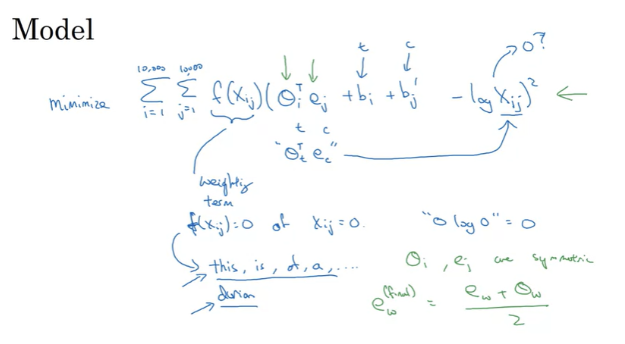 Model
t c 0?
minimize 10,000 Σ i=1 10,000 Σ j=1 f(Xij) (θiᵀ ej + bi + bj' − log Xij)²
t c
"θtᵀ ec"
weighting term
f(Xij) = 0 if Xij = 0. "0 log 0" = 0
this, is, of, a, .... θi, ej are symmetric
durian
ew(final) = ew + θw / 2